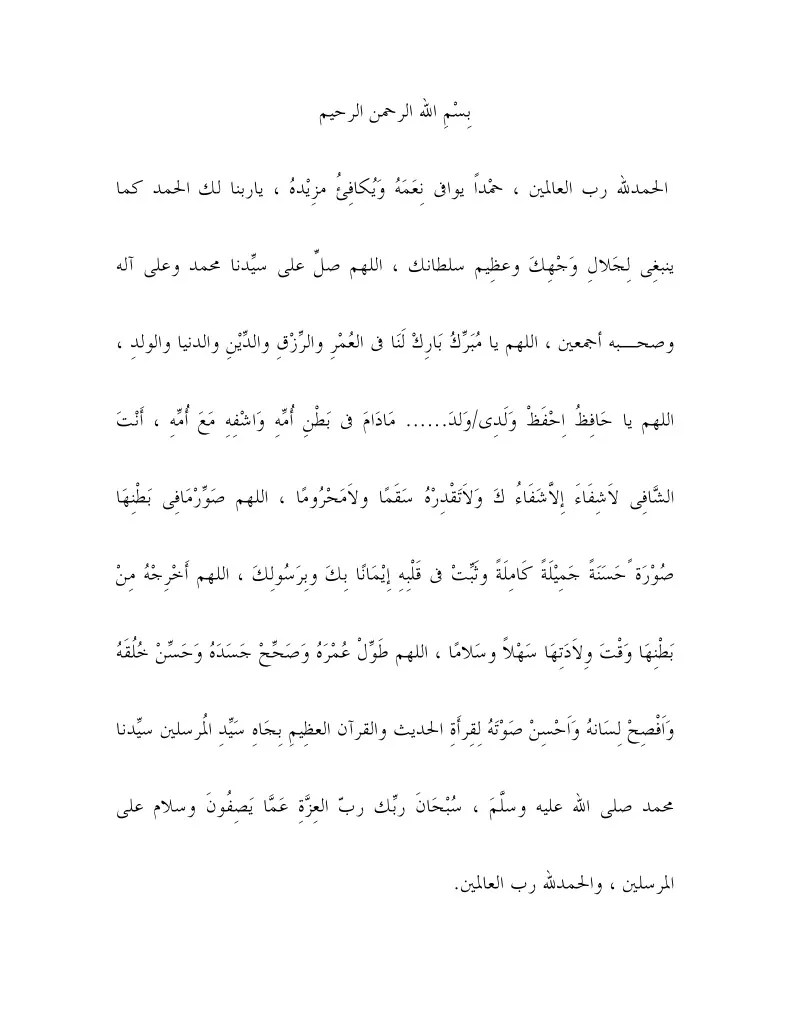 بِسْمِ الله الرحمن الرحيم
الحمدلله رب العالمين ، حمْداً يوافى نِعَمَهُ وَيُكافِئُ مزِيْدهُ ، ياربنا لك الحمد كما
ينبغِى لِجَلالِ وَجْهِكَ وعظِيم سلطانك ، اللهم صلِّ على سيِّدنا محمد وعلى آله
وصحـــبه أجمعين ، اللهم يا مُبَرِّكُ بَارِكْ لَنَا فى العُمْرِ والرِّزْقِ والدِّيْنِ والدنيا والولدِ ،
اللهم يا حَافِظُ اِحْفَظْ وَلَدِى/وَلدَ...... مَادَامَ فى بَطْنِ أُمِّهِ وَاشْفِهِ مَعَ أُمِّهِ ، أَنْتَ
الشَّافِى لاَشِفَاءَ إِلاَّشَفَاءُ كَ وَلاَتَقْدِرْهُ سَقَمًا ولاَمَحْرُومًا ، اللهم صَوِّرْمَافِى بَطْنِهَا
صُوْرَة ًحَسَنَةً جَمِيْلَةً كَامِلَةً وثَبِّتْ فى قَلْبِهِ إِيْمَانًا بِكَ وبِرَسُولِكَ ، اللهم أَخْرِجْهُ مِنْ
بَطْنِهَا وَقْتَ وِلاَدَتِهَا سَهْلاً وسَلامًا ، اللهم طَوِّلْ عُمْرَهُ وَصَحِّحْ جَسَدَهُ وَحَسِّنْ خُلُقَهُ
وَاَفْصِحْ لِسَانهُ وَاَحْسِنْ صَوْتَهُ لِقِرأَةِ الحديث والقرآن العظِيمِ بِجَاهِ سَيِّدِ المُرسلين سيِّدنا
محمد صلى الله عليه وسلَّمَ ، سُبْحَانَ ربِّك ربّ العِزَّةِ عَمَّا يَصِفُونَ وسلام على
المرسلين ، والحمدلله رب العالمين.